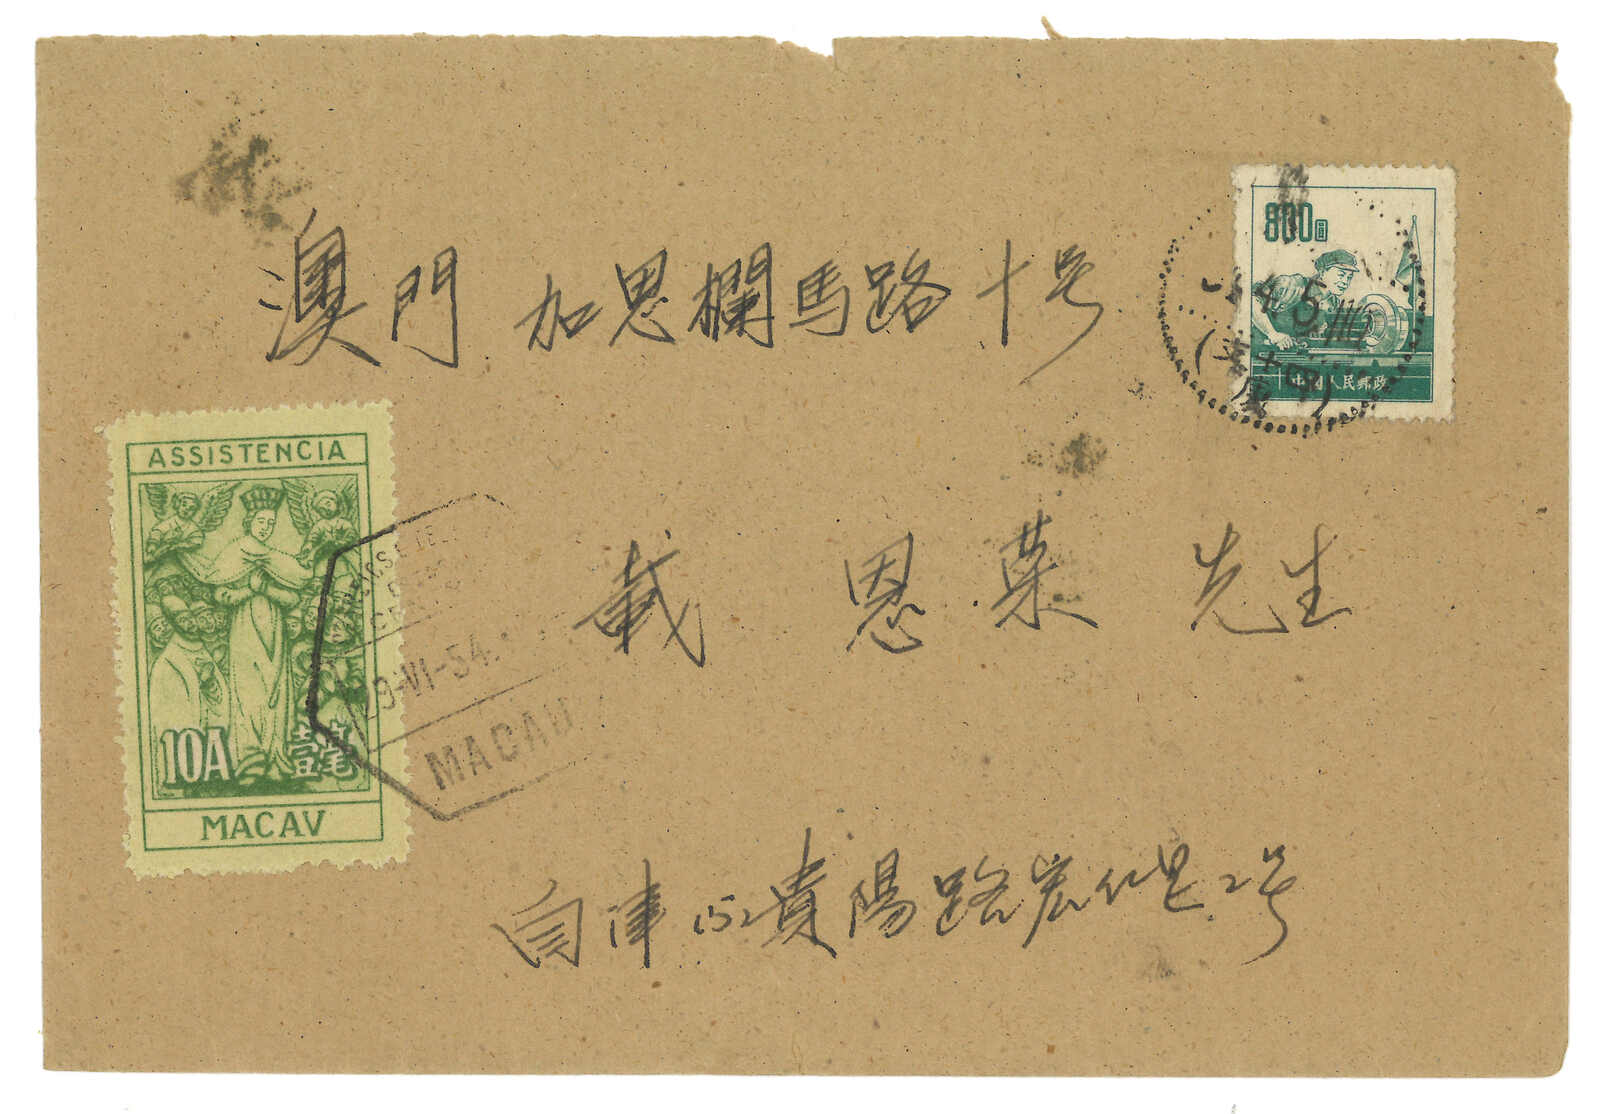 澳門 加思欄馬路十号
800圓
中国人民郵政
ASSISTENCIA
10A 壹毫
MACAV
09-VI-54
MACAU
戴 恩荣 先生
自津 152貴陽路宏仁里2号